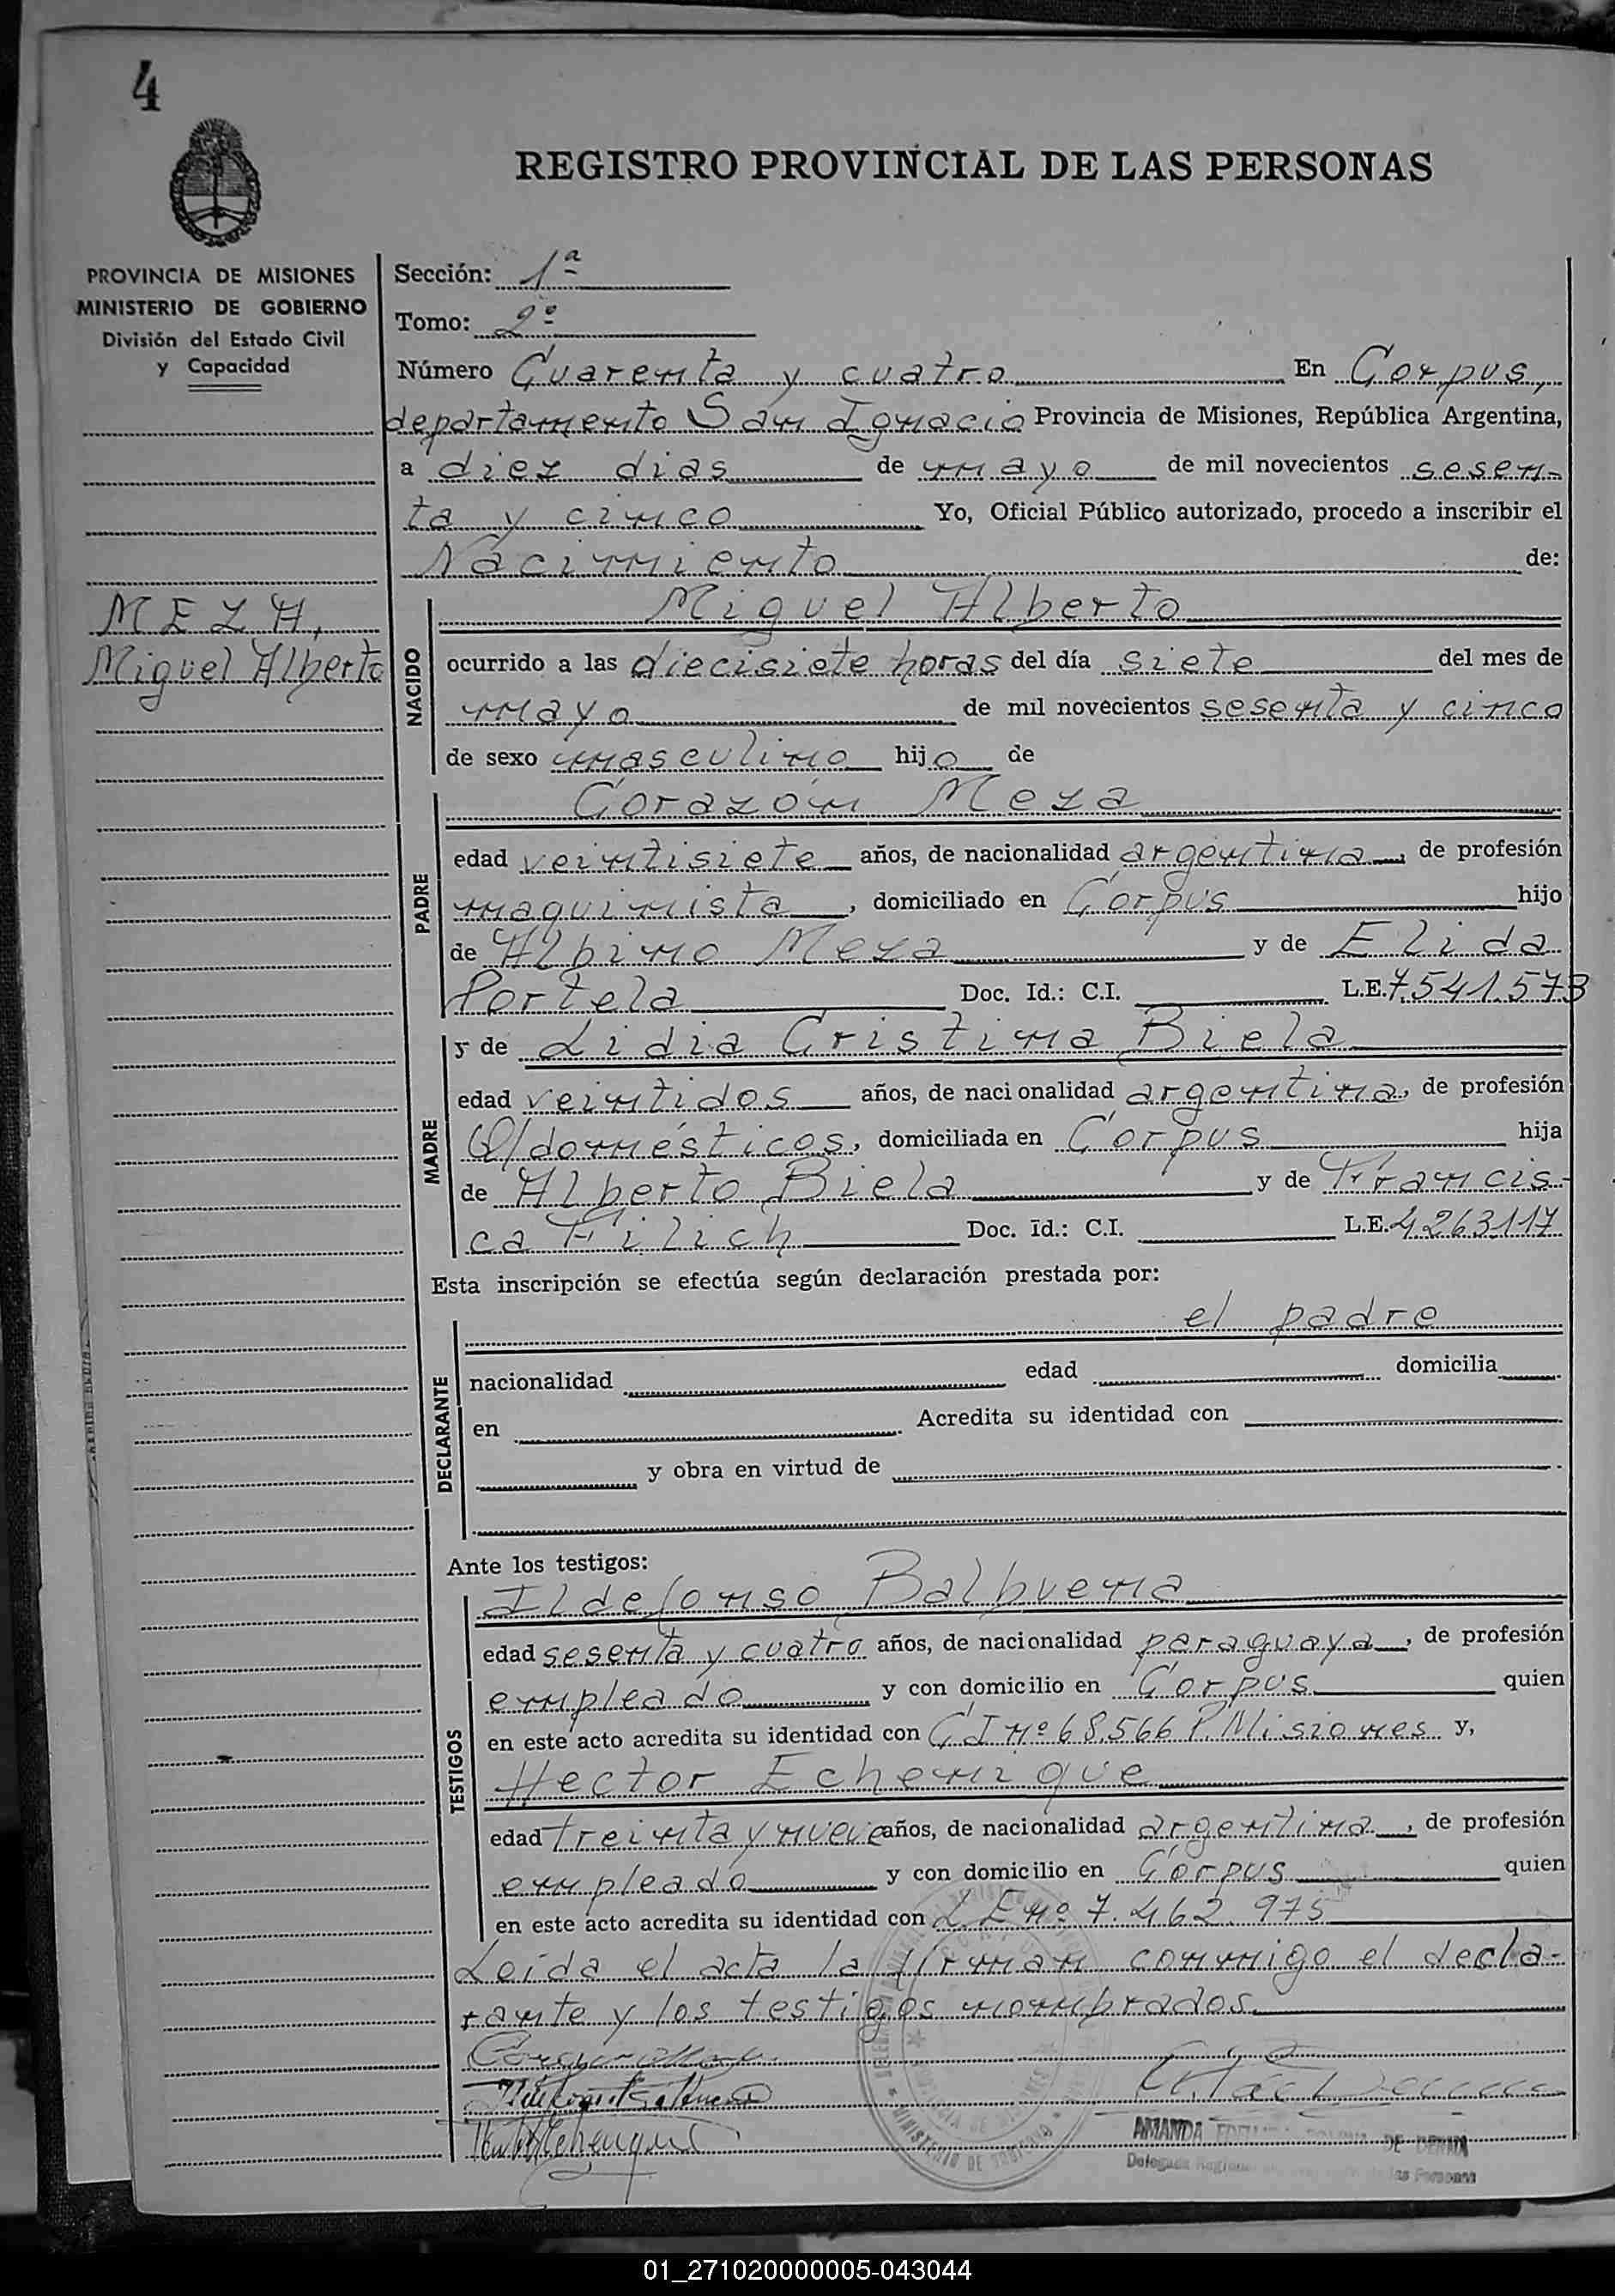 4
REGISTRO PROVINCIAL DE LAS PERSONAS
PROVINCIA DE MISIONES
MINISTERIO DE GOBIERNO
División del Estado Civil
y Capacidad
Sección: 1ª
Tomo: 2º
Número Cuarenta y cuatro En Corpus,
departamento San Ignacio Provincia de Misiones, República Argentina,
a diez dias de mayo de mil novecientos sesen-
ta y cinco Yo, Oficial Público autorizado, procedo a inscribir el
Nacimiento de:
MEZA,
Miguel Alberto
NACIDO
Miguel Alberto
ocurrido a las diecisiete horas del día siete del mes de
mayo de mil novecientos sesenta y cinco
de sexo masculino hijo de
PADRE
Corazón Meza
edad veintisiete años, de nacionalidad argentina, de profesión
maquinista, domiciliado en Corpus hijo
de Albino Meza y de Elida
Portela Doc. Id.: C.I. L.E. 7.541.573
MADRE
y de Lidia Cristina Biela
edad veintidos años, de nacionalidad argentina, de profesión
Q/domésticos, domiciliada en Corpus hija
de Alberto Biela y de Francis-
ca Filich Doc. Id.: C.I. L.E. 4.263.117
Esta inscripción se efectúa según declaración prestada por:
DECLARANTE
el padre
nacionalidad edad domicilia
en Acredita su identidad con
y obra en virtud de
Ante los testigos:
TESTIGOS
Ildefonso Balbuena
edad sesenta y cuatro años, de nacionalidad paraguaya, de profesión
empleado y con domicilio en Corpus quien
en este acto acredita su identidad con CI nº 68.566 P. Misiones y,
Hector Echenique
edad treinta y nueve años, de nacionalidad argentina, de profesión
empleado y con domicilio en Corpus quien
en este acto acredita su identidad con LE nº 7.462.975
Leida el acta la firman conmigo el decla-
rante y los testigos nombrados.
MINISTERIO DE GOBIERNO
AMANDA DE
Delegada las Personas
01_271020000005-043044